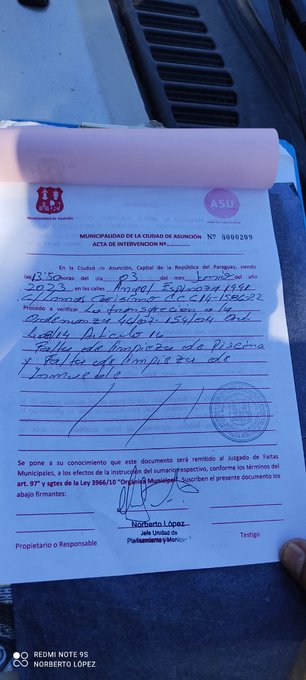 Municipalidad de Asunción
ASU
MUNICIPALIDAD DE LA CIUDAD DE ASUNCIÓN
ACTA DE INTERVENCIÓN Nº
Nº 0000209
En la Ciudad de Asunción, Capital de la República del Paraguay, siendo
las 13:50 horas del día 03 del mes junio del año
2023, en las calles Angel Espinoza 1991
c/ Lomas C.C. 14-1586-22
Procedo a verificar La transgrecion a la
Ordenanza 40/07-154/04
408/14 Articulo 14
Falta de limpieza de Piscina
y Falta de limpieza de
inmueble
Se pone a su conocimiento que este documento será remitido al Juzgado de Faltas
Municipales, a los efectos de la instrucción del sumario respectivo, conforme los términos del
art. 97° y sgtes de la Ley 3966/10 "Orgánica Municipal". Suscriben el presente documento los
abajo firmantes:
Norberto López
Jefe Unidad de
Planeamiento y Monitoreo
Propietario o Responsable
Testigo
REDMI NOTE 9S
NORBERTO LÓPEZ